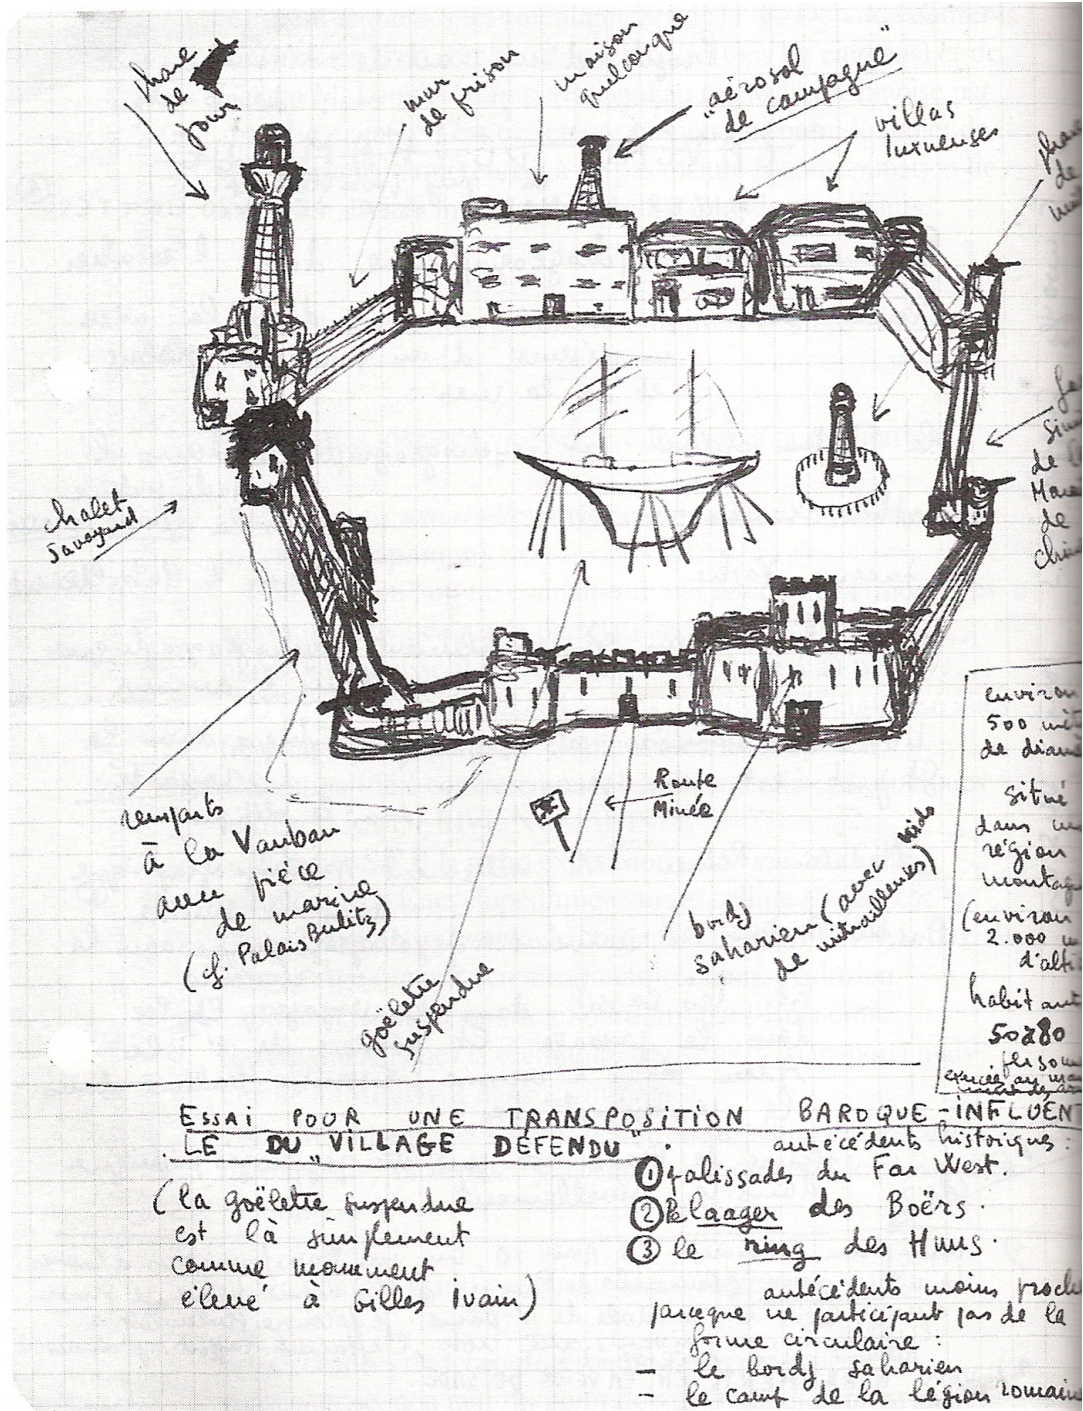 phare
de
jour
mur
de prison
maison
quelconque
"aérosol
de campagne"
villas
luxueuses
phare
de
chalet
savoyard
de
de
remparts
à la Vauban
avec pièce
de marine
(cf. Palais Bulitz)
goëlette
suspendue
Route
Minée
bordj
saharien (avec nids
de mitrailleuses)
environ
500
de
situé
dans
région
(environ
2.000
habitants
50 à 80
ESSAI POUR UNE TRANSPOSITION BAROQUE-INFLUEN
LE DU "VILLAGE DÉFENDU".
(la goëlette suspendue
est là simplement
comme monument
élevé à Gilles Ivain)
antécédents historiques :
① palissades du Far West.
② le laager des Boërs.
③ le ring des Huns.
antécédents moins
parceque ne participant pas de la
forme circulaire :
– le bordj saharien
– le camp de la légion romain